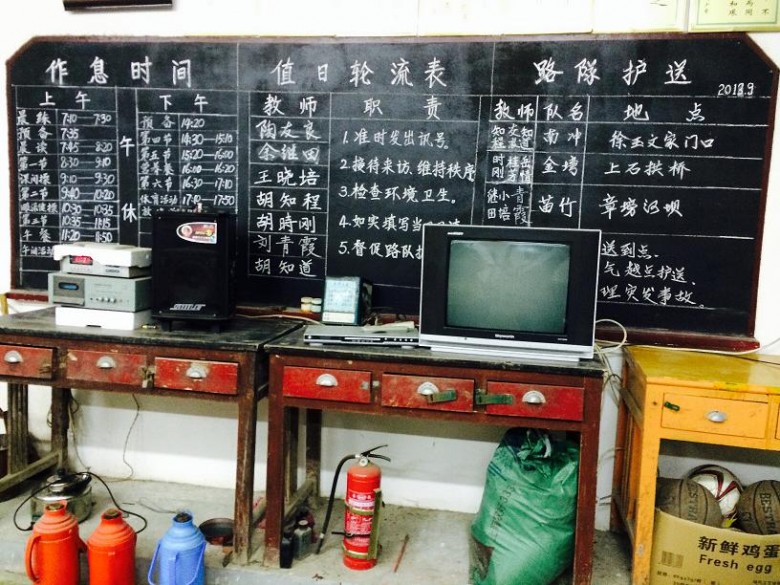 作息时间
上午
晨练 7:10 7:30
预备 7:35
晨读 7:45 8:20
第一节 8:30 9:10
课间操 9:10 9:30
第二节 9:40 10:20
眼保健操 10:30 10:35
第三节 10:35 11:15
午餐 11:20 11:50
午间活动
午休
下午
预备 14:20
第四节 14:30-15:10
第五节 15:20-16:00
第六节 16:30-17:10
体育活动
值日轮流表
教师
陶友良
余继田
王晓培
胡知程
胡時刚
刘青霞
胡知道
职责
1.准时发出讯号。
2.接待来访、维持秩序
3.检查环境卫生。
4.如实填写当
5.督促路队
路隊护送
2018.9
教师 队名 地点
南冲 徐玉文家门口
金塝 上石拱桥
苗竹 章塝河坝
送到点.
气 越点护送.
理突发事故.
Skyworth
新鲜鸡蛋
Fresh egg